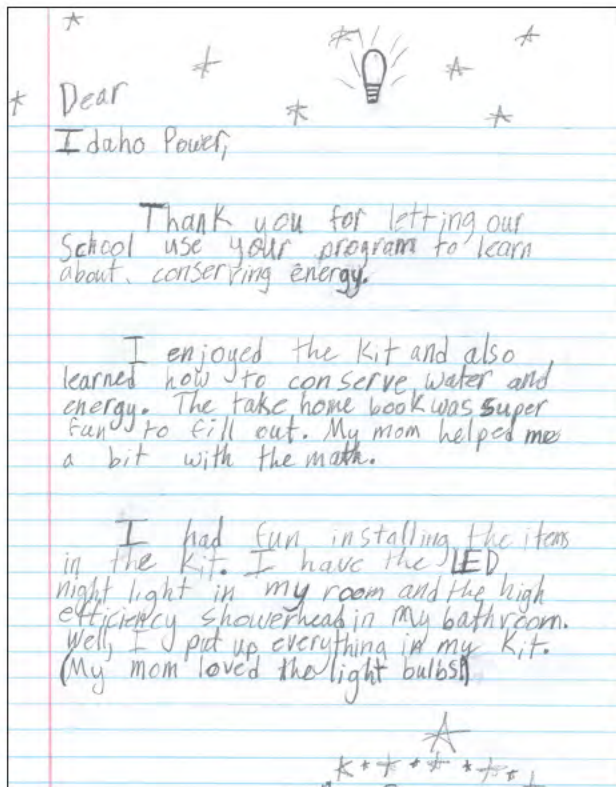 Dear
Idaho Power,
Thank you for letting our
School use your program to learn
about conserving energy.
I enjoyed the Kit and also
learned how to conserve water and
energy. The take home book was super
fun to fill out. My mom helped me
a bit with the math.
I had fun installing the items
in the Kit. I have the LED
night light in my room and the high
efficiency showerhead in my bathroom.
Well, I put up everything in my Kit.
(My mom loved the light bulbs!)